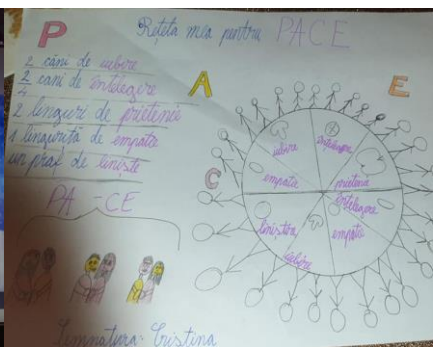 P
Rețeta mea pentru PACE
A
E
C
2 căni de iubire
2 cani de întelegere
4
2 linguri de prietenie
1 linguriță de empatie
un praf de liniște
PA-CE
iubire
întelegere
empatie
prietenie
linistea
întelegere
empatie
iubire
Semnatura: Cristina